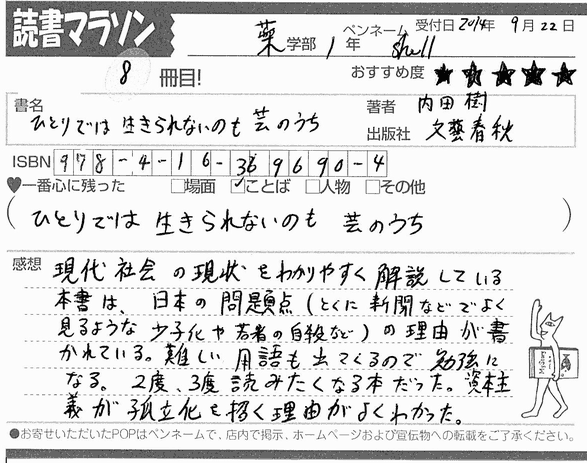 読書マラソン
薬学部 1年 ペンネーム shell 受付日2014年 9月22日
8冊目!
おすすめ度 ★★★★★
書名 ひとりでは 生きられないのも 芸のうち
著者 内田 樹
出版社 文藝春秋
ISBN 978-4-16-369690-4
♥一番心に残った □場面 ☑ことば □人物 □その他
(ひとりでは 生きられないのも 芸のうち)
感想 現代社会の現状をわかりやすく解説している
本書は、日本の問題点(とくに新聞などでよく
見るような少子化や若者の自殺など)の理由が書
かれている。難しい用語も出てくるので勉強に
なる。2度、3度読みたくなる本だった。資本主
義が孤立化を招く理由がよくわかった。
●お寄せいただいたPOPはペンネームで、店内で掲示、ホームページおよび宣伝物への転載をご了承ください。